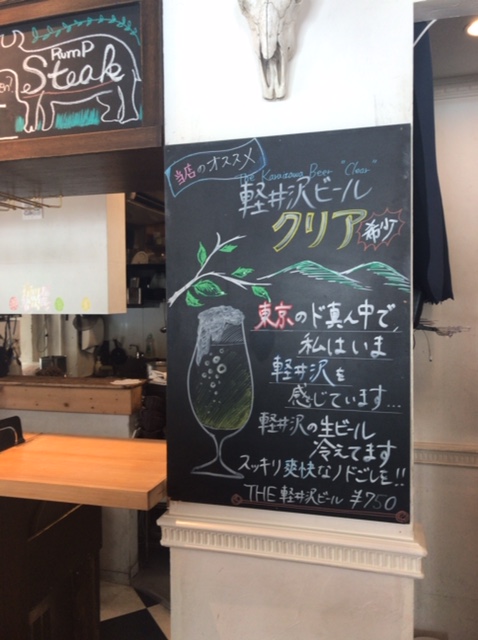 Rump
Steak
当店のオススメ
The Karuizawa Beer "Clear"
軽井沢ビール
クリア
希少
東京のド真ん中で、
私はいま
軽井沢を
感じています…
軽井沢の生ビール
冷えてます
スッキリ爽快なノドごしを!!
THE 軽井沢ビール ¥750